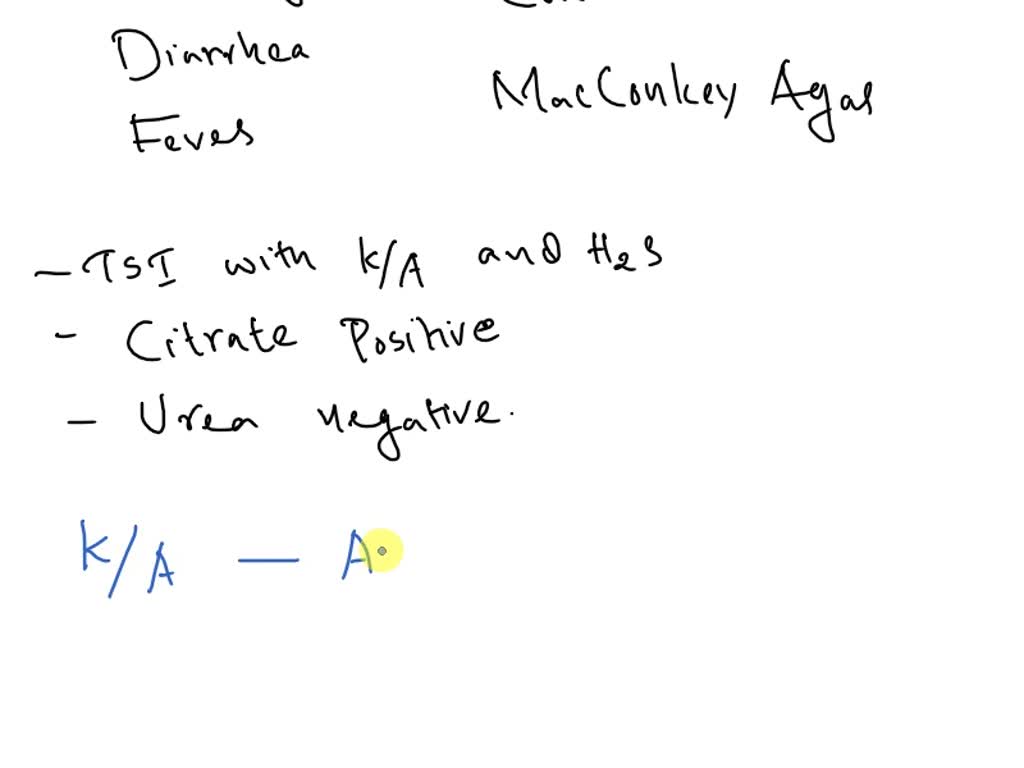 Diarrhea
MacConkey Agar
Fever
- TSI with K/A and H2S
- Citrate Positive
- Urea negative.
K/A — A